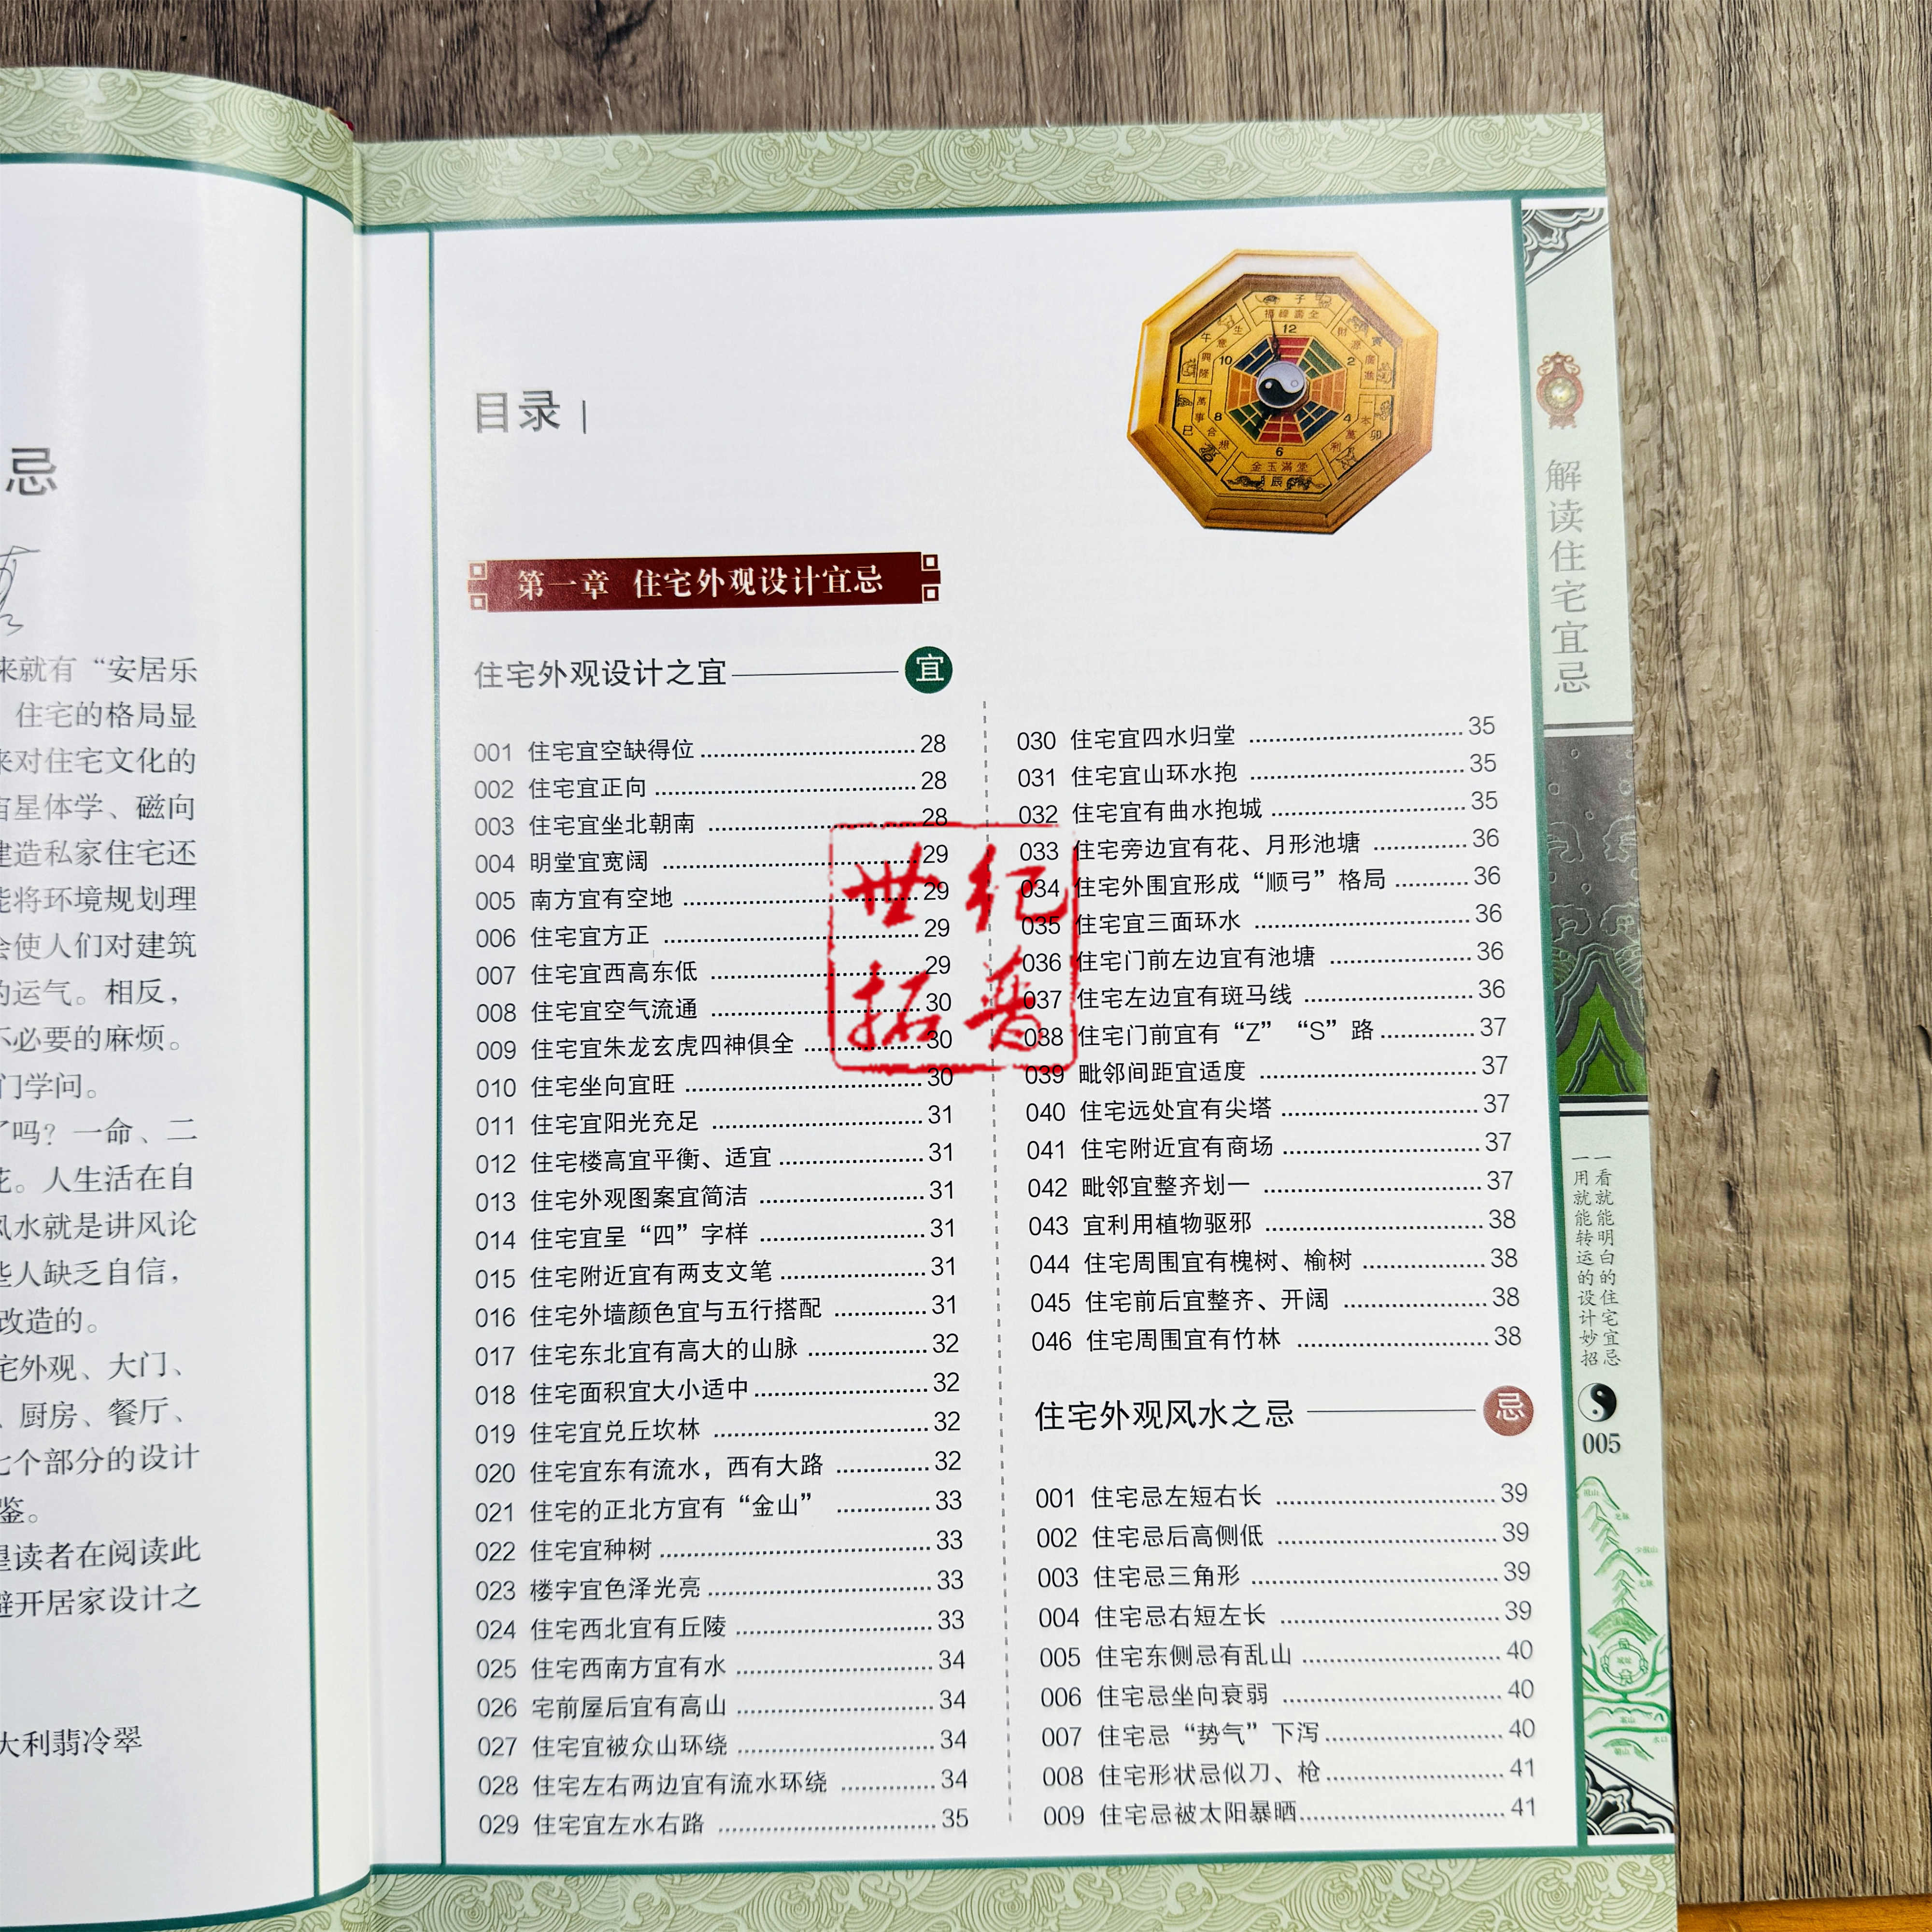 忌
来就有“安居乐
住宅的格局显
来对住宅文化的
宙星体学、磁向
建造私家住宅还
能将环境规划理
会使人们对建筑
的运气。相反，
不必要的麻烦。
门学问。
了吗？一命、二
花。人生活在自
风水就是讲风论
些人缺乏自信，
改造的。
宅外观、大门、
、厨房、餐厅、
七个部分的设计
鉴。
望读者在阅读此
避开居家设计之
大利翡冷翠
目录
第一章 住宅外观设计宜忌
住宅外观设计之宜 宜
001 住宅宜空缺得位 28
002 住宅宜正向 28
003 住宅宜坐北朝南 28
004 明堂宜宽阔 29
005 南方宜有空地 29
006 住宅宜方正 29
007 住宅宜西高东低 29
008 住宅宜空气流通 30
009 住宅宜朱龙玄虎四神俱全 30
010 住宅坐向宜旺 30
011 住宅宜阳光充足 31
012 住宅楼高宜平衡、适宜 31
013 住宅外观图案宜简洁 31
014 住宅宜呈“四”字样 31
015 住宅附近宜有两支文笔 31
016 住宅外墙颜色宜与五行搭配 31
017 住宅东北宜有高大的山脉 32
018 住宅面积宜大小适中 32
019 住宅宜兑丘坎林 32
020 住宅宜东有流水，西有大路 32
021 住宅的正北方宜有“金山” 33
022 住宅宜种树 33
023 楼宇宜色泽光亮 33
024 住宅西北宜有丘陵 33
025 住宅西南方宜有水 34
026 宅前屋后宜有高山 34
027 住宅宜被众山环绕 34
028 住宅左右两边宜有流水环绕 34
029 住宅宜左水右路 35
030 住宅宜四水归堂 35
031 住宅宜山环水抱 35
032 住宅宜有曲水抱城 35
033 住宅旁边宜有花、月形池塘 36
034 住宅外围宜形成“顺弓”格局 36
035 住宅宜三面环水 36
036 住宅门前左边宜有池塘 36
037 住宅左边宜有斑马线 36
038 住宅门前宜有“Z”“S”路 37
039 毗邻间距宜适度 37
040 住宅远处宜有尖塔 37
041 住宅附近宜有商场 37
042 毗邻宜整齐划一 37
043 宜利用植物驱邪 38
044 住宅周围宜有槐树、榆树 38
045 住宅前后宜整齐、开阔 38
046 住宅周围宜有竹林 38
住宅外观风水之忌 忌
001 住宅忌左短右长 39
002 住宅忌后高侧低 39
003 住宅忌三角形 39
004 住宅忌右短左长 39
005 住宅东侧忌有乱山 40
006 住宅忌坐向衰弱 40
007 住宅忌“势气”下泻 40
008 住宅形状忌似刀、枪 41
009 住宅忌被太阳暴晒 41
世纪
拓普
子
福祿壽全
12
2
4
6
8
10
金玉滿堂
辰
巳
午
卯
寅
解读住宅宜忌
一看就能明白的住宅宜忌
一用就能转运的设计妙招
005